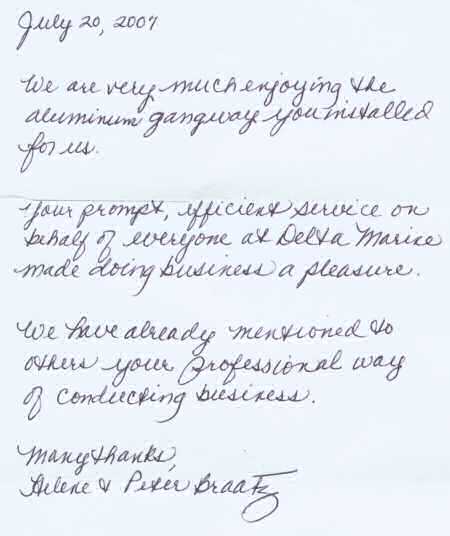 July 20, 2007
We are very much enjoying the
aluminum gangway you installed
for us.
Your prompt, efficient service on
behalf of everyone at Delta Marine
made doing business a pleasure.
We have already mentioned to
others your professional way
of conducting business.
Many thanks,
Helene & Peter Braatz